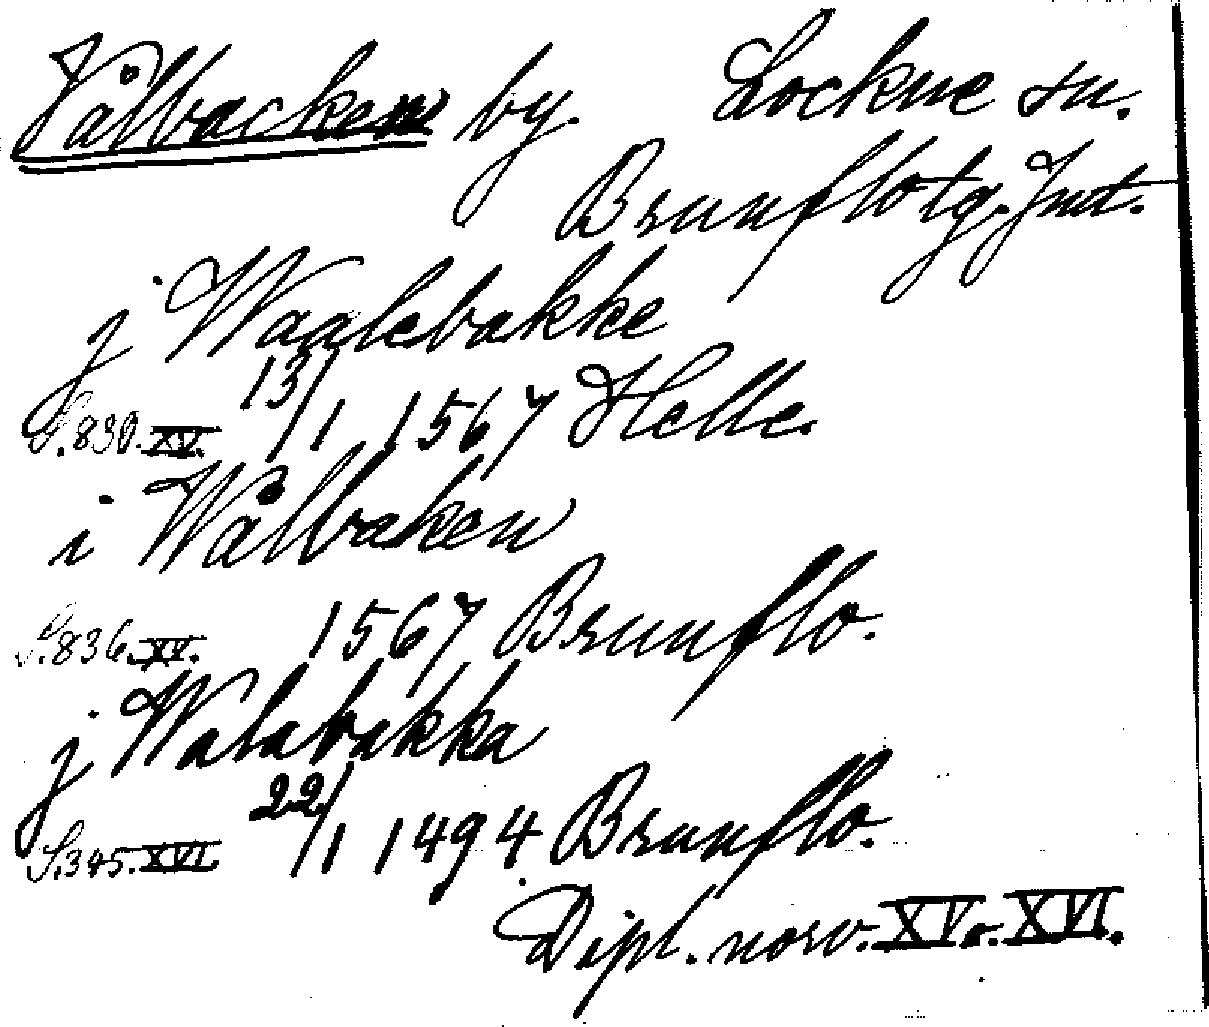 Vålbacken by. Lockne sn.
Brunflo tg. Jmt.
j Waalebakke
S. 830. XV. 13/1 1567 Helle.
i Wålbaken
S. 836. XV. 1567 Brunflo.
j Walabakka
S. 345. XVI. 22/1 1494. Brunflo.
Dipl. norv. XV o. XVI.